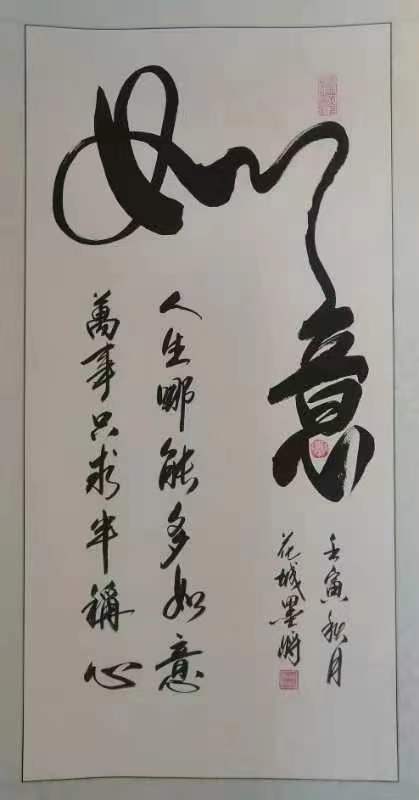 如意
人生哪能多如意
萬事只求半稱心
壬寅秋月
花城墨将